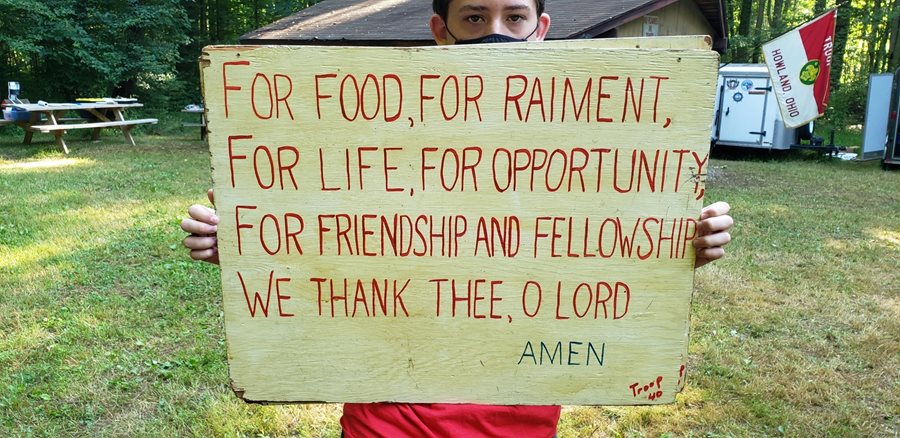 FOR FOOD, FOR RAIMENT,
FOR LIFE, FOR OPPORTUNITY,
FOR FRIENDSHIP AND FELLOWSHIP
WE THANK THEE, O LORD
AMEN
Troop
40
HOWLAND, OHIO